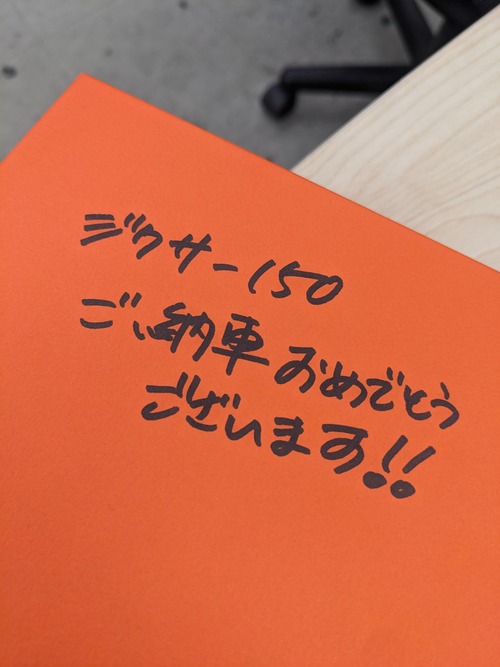 ジクサー150
ご納車おめでとう
ございます!!